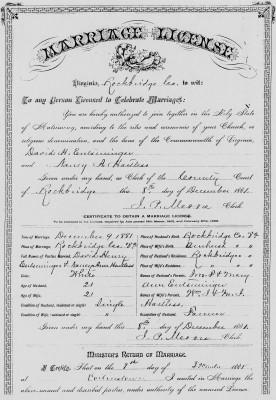 MARRIAGE LICENSE.
Virginia, Rockbridge Co. to wit:
To any Person Licensed to Celebrate Marriages:
You are hereby authorized to join together in the Holy State
of Matrimony, according to the rites and ceremonies of your Church, or
religious denomination, and the laws of the Commonwealth of Virginia,
David H. Entsminger
and Nancy A. Hartless
Given under my hand, as Clerk of the County Court
of Rockbridge this 8th day of December 1881.
J. P. Moore Clerk
CERTIFICATE TO OBTAIN A MARRIAGE LICENSE,
Time of Marriage, December 9 1881
Place of Marriage, Rockbridge Co. Va
Full Names of Parties Married, David Henry
Entsminger & Hartless
White
Age of Husband, 21
Age of Wife, 21
Condition of Husband, (widowed or single) Single
Condition of Wife, (widowed or single) "
Place of Husband's Birth, Rockbridge Co. Va
Place of Wife's Birth, Amherst "
Place of Husband's Residence, Rockbridge "
Place of Wife's Residence, " "
Names of Husband's Parents, Jno. F. & Mary
Ann Entsminger
Names of Wife's Parents, Wm.
Hartless
Occupation of Husband, Farmer
Given under my hand this 8th day of December 1881.
J. P. Moore Clerk
MINISTER'S RETURN OF MARRIAGE.
I Certify, That on the 9th day of December 1881
at I united in Marriage the
above-named and described parties, under authority of the annexed License.